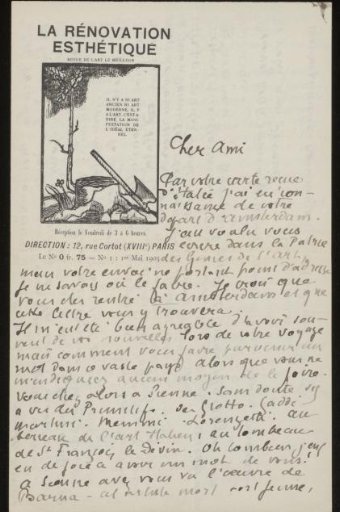 LA RÉNOVATION
ESTHÉTIQUE
REVUE DE L'ART LE MEILLEUR
IL N'Y A NI ART
ANCIEN NI ART
MODERNE, IL Y
A L'ART, C'EST A
DIRE LA MANI-
FESTATION DE
L'IDÉAL ÉTER-
NEL
Réception le Vendredi de 3 à 6 heures.
DIRECTION : 12, rue Cortot (XVIIIe) PARIS
Le No 0 fr. 75 — No 1: 1er Mai
Cher Ami
Par votre carte reçue
d'Italie j'ai eu con-
naissance de votre
départ d'Amsterdam.
J'au voulu vous
écrire dans la Patrie
des Génies de l'art,
mais votre envoi ne portant point d'adresse
je ne savais où le faire. Je crois que
vous êtes rentré à Amsterdam et que
cette lettre vous y trouvera.
Il m'eut été bien agréable d'avoir sou-
vent de vos nouvelles lors de votre voyage
mais comment vous faire parvenir un
mot dans ce vaste pays alors que vous ne
m'indiquiez aucun moyen de le faire.
Vous êtes allé à Sienne. Sans doute
a vu des Primitifs. de Giotto. Gaddi
Martini. Memmi Lorenzetti. au
berceau de l'art Italien, au tombeau
de St François, le Divin. Oh combien j'eus
eu de joie à avoir un mot de vous.
a Sienne avez vous vu l'œuvre de
Barna - cet artiste mort fort jeune,